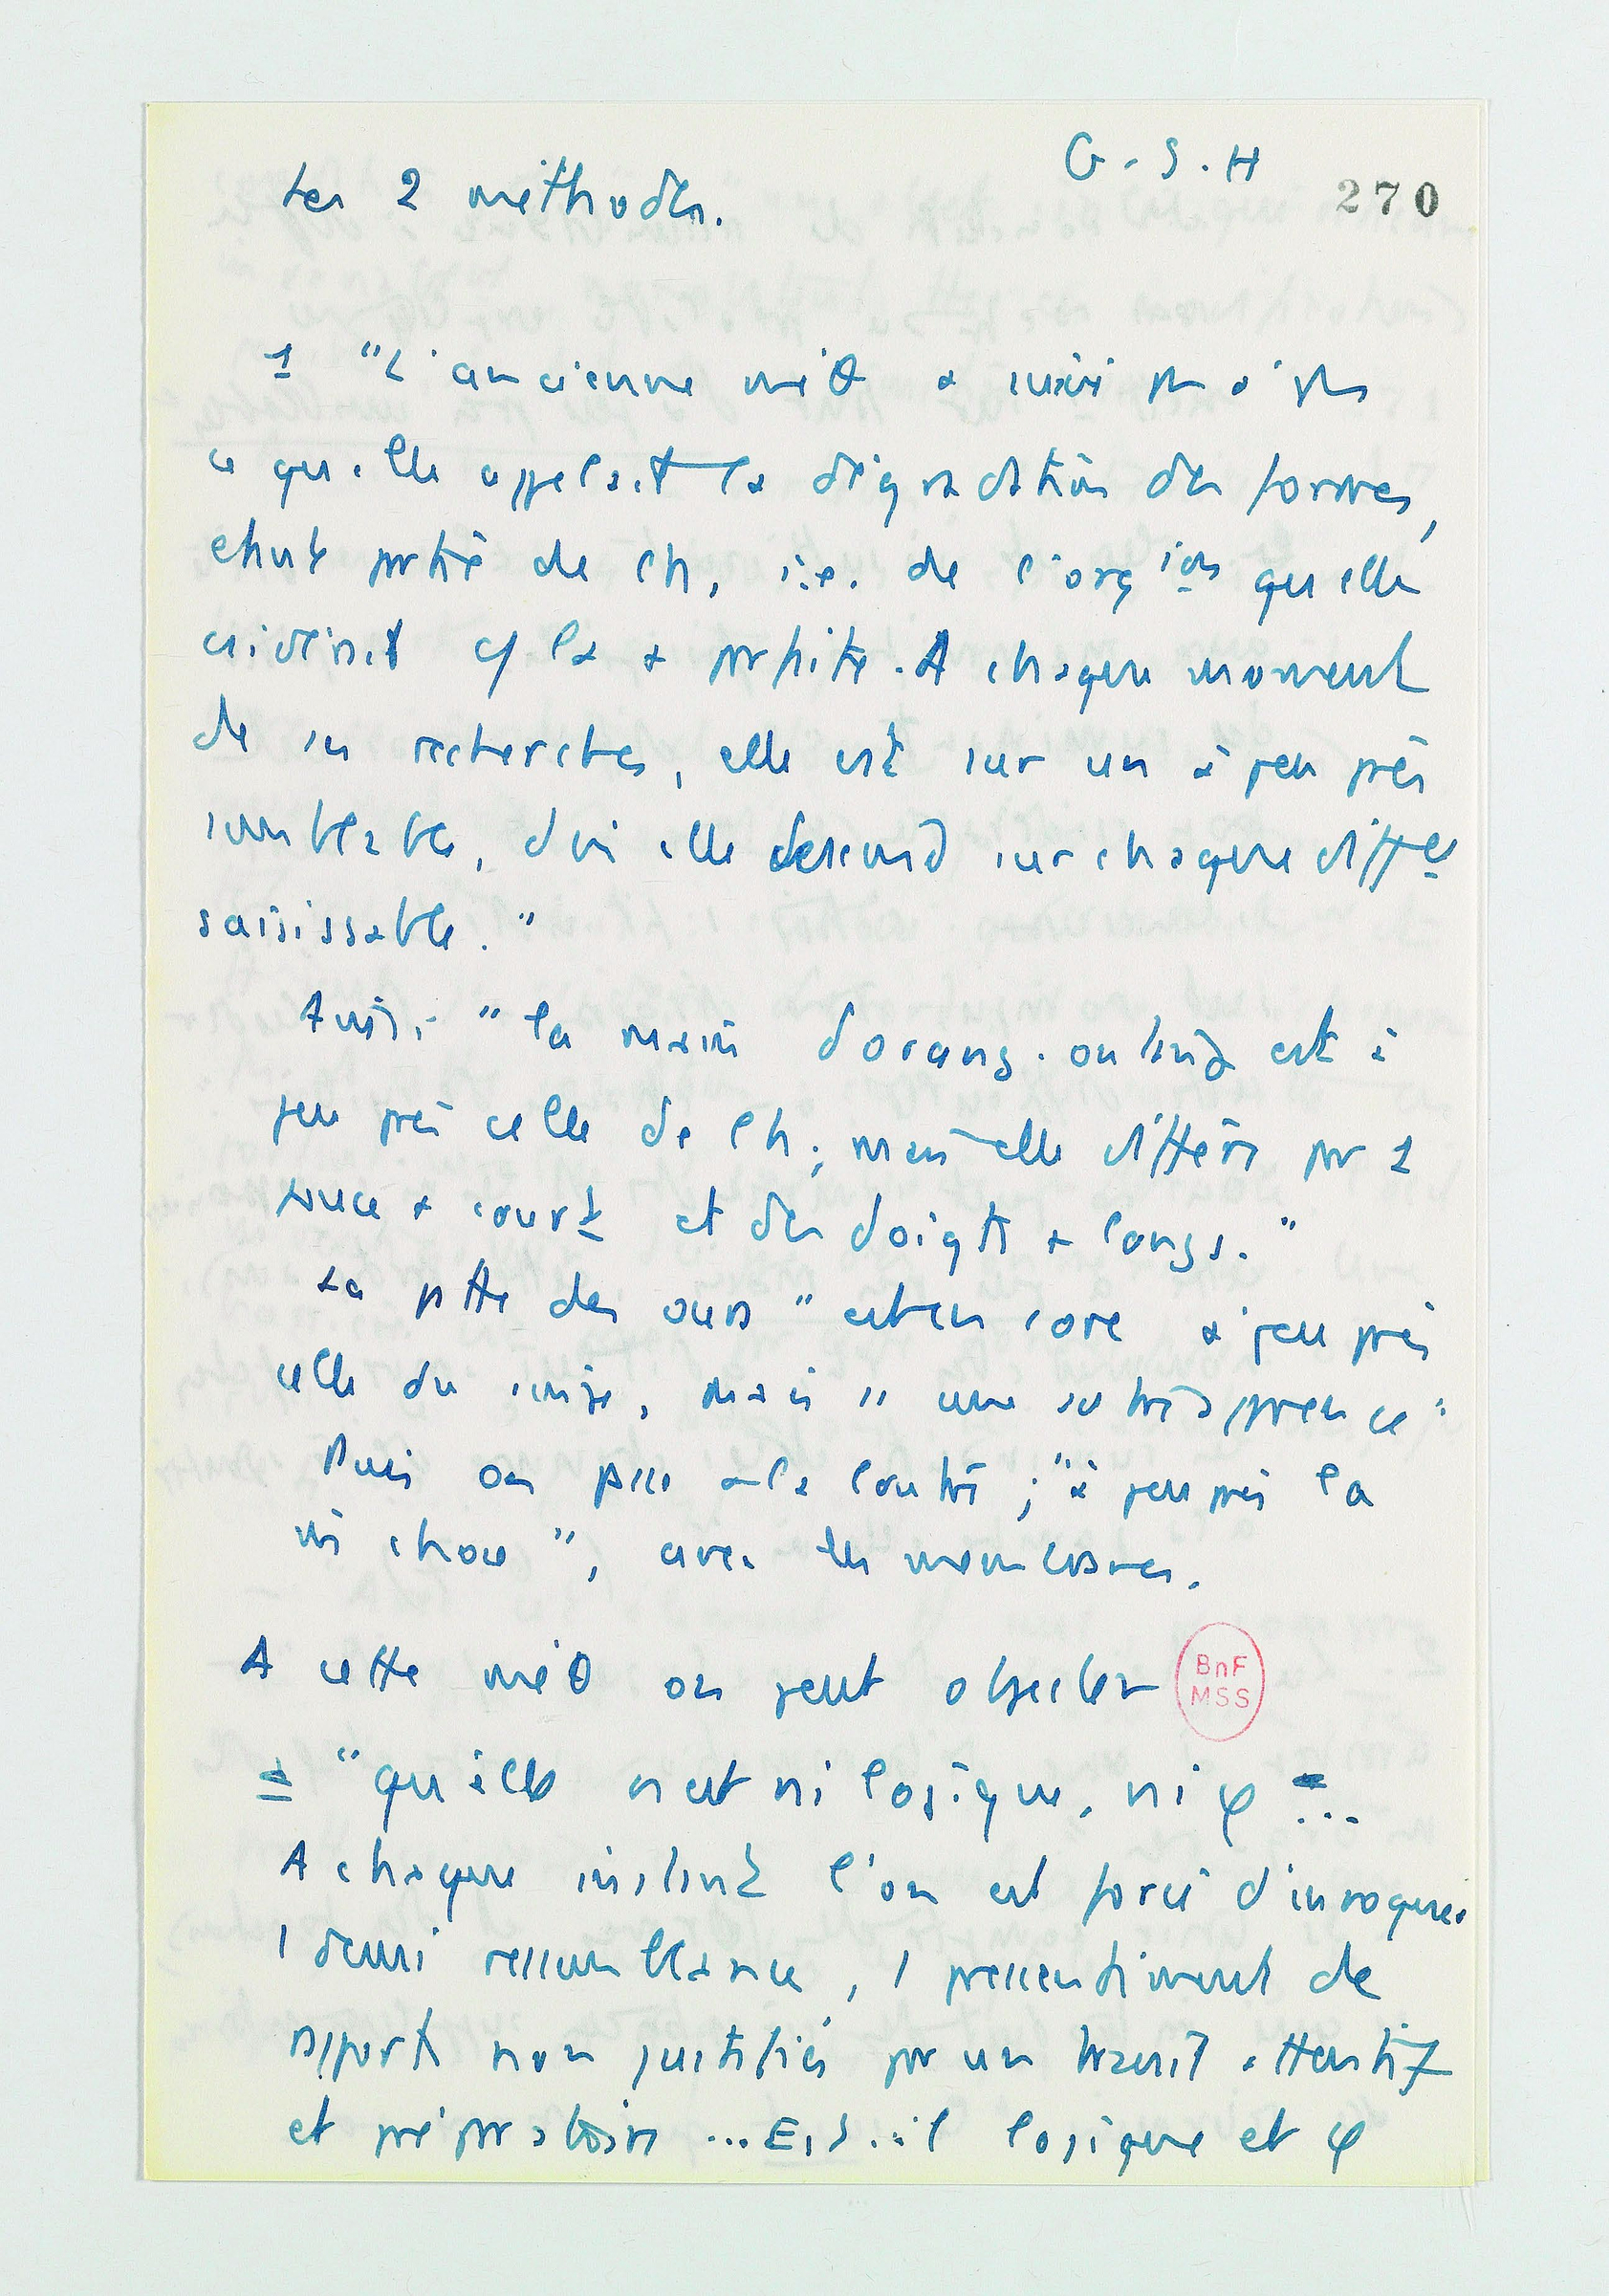 G.S.H
270
Les 2 méthodes.
1 "L'ancienne méθ a suivi pas à pas
ce qu'elle appelait la dégradation des formes,
étant partie de l'h, i.e. de l'orgion qu'elle
csidérait c/ la + parfaite. A chaque moment
de ses recherches, elle est sur un à peu près
semblable, d'où elle descend sur chaque diffce
saisissable."
Ainsi "la main d'orang-outang est à
peu près celle de l'h; mais elle diffère par 1
pouce + court et des doigts + longs."
La patte des ours "est encore à peu près
celle du singe, mais ss une autre apparence"
Puis on passe à la loutre; "à peu près la
m̂ chose", avec des membranes.
A cette méθ on peut objecter
= "qu'elle n'est ni logique, ni φ ...
A chaque instant l'on est forcé d'invoquer
1 demi ressemblance, 1 pressentiment de
rapports non justifiés par un travail attentif
et préparatoire ... Est-il logique et φ
BnF
MSS